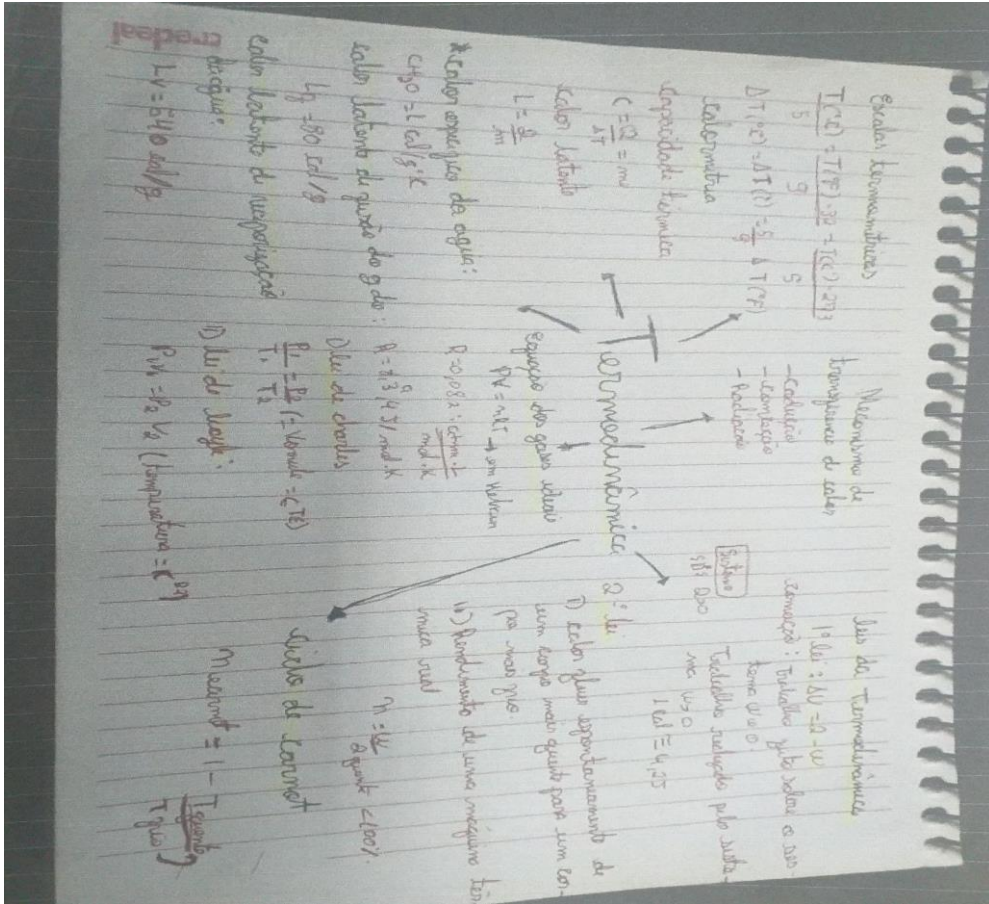 Termodinâmica
Escalas termométricas
T(°C) = T(°F)-32 = T(K)-273
5 9 5
ΔT(°C) = ΔT(K) = 5/9 ΔT(°F)
Calorimetria
Capacidade térmica
C = Q/ΔT = mc
Calor latente
L = Q/m
*Calor específico da agua:
CH2O = 1 cal/g°C
calor latente de fusão do gelo:
Lf = 80 cal/g
calor latente de vaporização
da água:
LV = 540 cal/g
credeal
Mecanismo de
transferência de calor
- Condução
- Convecção
- Radiação
Equação dos gases ideais
PV = nRT → em Kelvin
R = 0,082 atm.L/mol.K
R = 8,314 J/mol.K
I) lei de charles
P1/T1 = P2/T2 (= Volume = cte)
II) lei de boyle:
P1V1 = P2V2 (temperatura =
leis da Termodinâmica
1ª lei: ΔU = Q - W
Trabalho feito sobre o sis-
tema W<0
Trabalho realizado pelo siste-
ma W>0
1 cal = 4,2J
Sistema
Q>0
2ª lei
I) calor flui espontaneamente de
um corpo mais quente para um cor-
po mais frio
II) Rendimento de uma máquina tér-
mica real
n = W/Qquente <100%
Ciclo de Carnot
ncarnot = 1 - Tquente/Tfrio